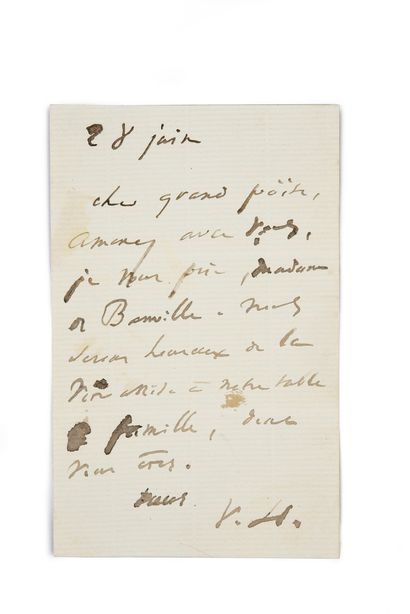 28 juin
cher grand poëte,
amenez avec vous,
je vous prie, madame
de Banville. nous
serons heureux de la
voir assise à notre table
de famille, dont
vous êtes.
V. H.